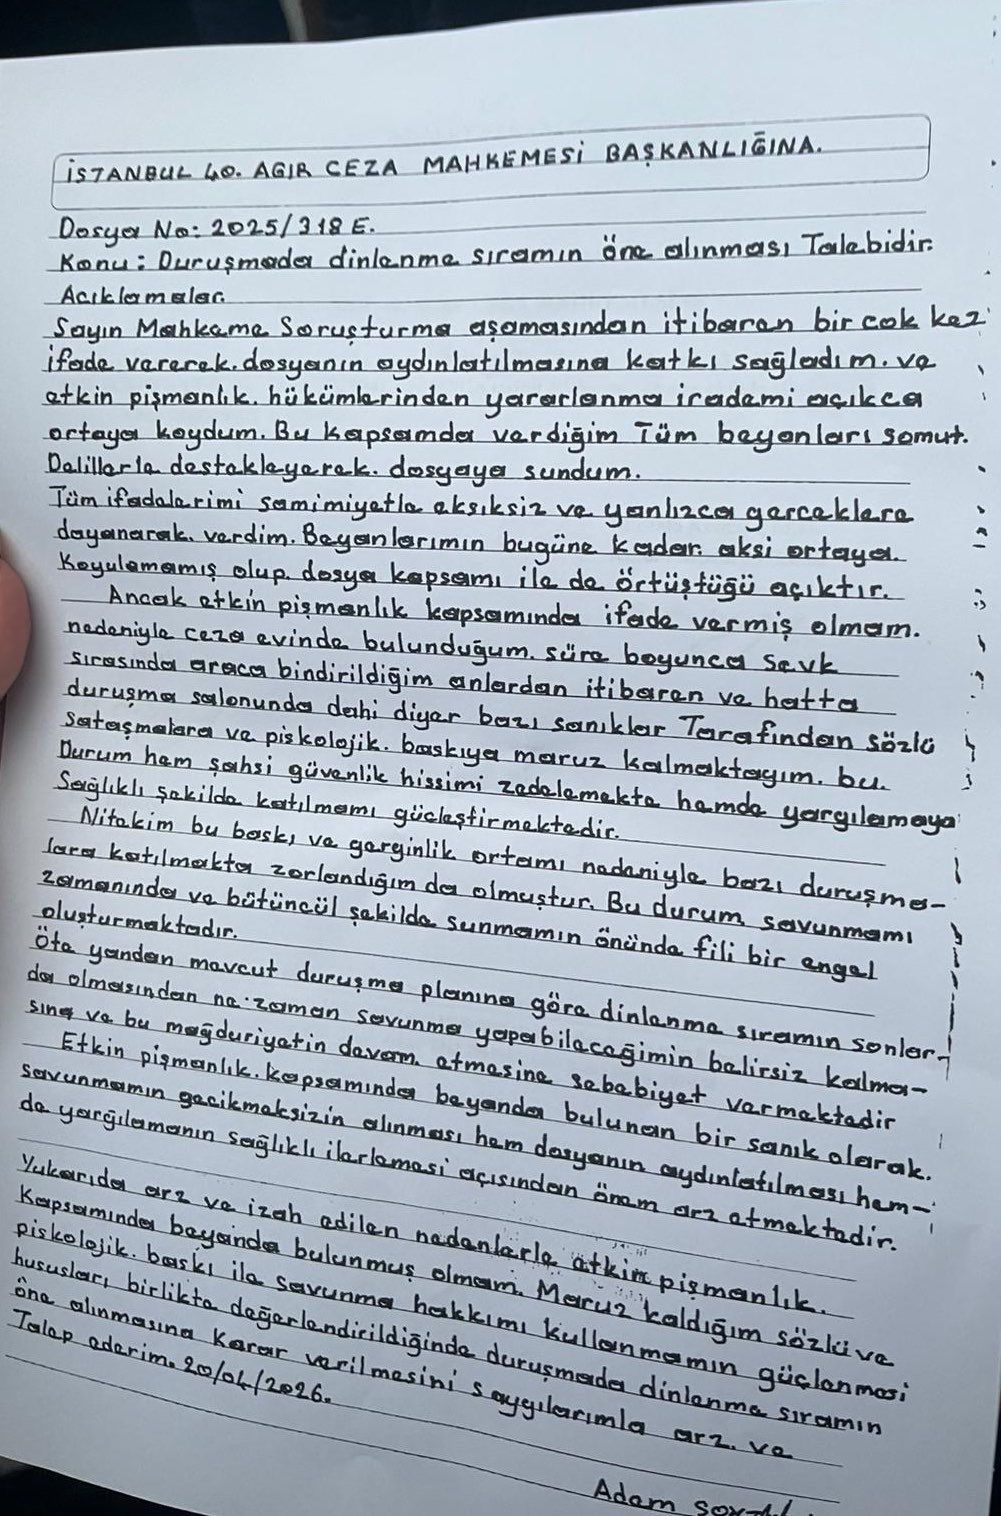 İSTANBUL 40. AĞIR CEZA MAHKEMESİ BAŞKANLIĞINA.
Dosya No: 2025/318 E.
Konu: Duruşmada dinlenme sıramın öne alınması Talebidir.
Acıklamalar.
Sayın Mahkeme Soruşturma aşamasından itibaren bir cok kez
ifade vererek. dosyanın aydınlatılmasına katkı sağladım. ve
etkin pişmanlık. hükümlerinden yararlanma irademi açıkca
ortaya koydum. Bu kapsamda verdiğim Tüm beyanları somut.
Delillerle destekleyerek. dosyaya sundum.
Tüm ifadelerimi samimiyetle eksiksiz ve yanlızca gerceklere
dayanarak. verdim. Beyanlarımın bugüne kadar. aksi ortaya.
Koyulamamış olup. dosya kapsamı ile de örtüştüğü açıktır.
Ancak etkin pişmanlık kapsamında ifade vermiş olmam.
nedeniyle ceza evinde bulunduğum. süre boyunca sevk
sırasında araca bindirildiğim anlardan itibaren ve hatta
duruşma salonunda dahi diyer bazı sanıklar Tarafından sözlü
sataşmalara ve piskolojik. baskıya maruz kalmaktayım. bu.
Durum hem şahsi güvenlik hissimi zedelemekte hemde yargılamaya
Sağlıklı şekilde katılmamı gücleştirmektedir.
Nitekim bu baskı ve gerginlik ortamı nedeniyle bazı duruşma-
lara katılmakta zorlandığım da olmuştur. Bu durum savunmamı
zamanında ve bütüncül şekilde sunmamın önünde fili bir engel
oluşturmaktadır.
Öte yandan mevcut duruşma planına göre dinlenme sıramın sonlar-
da olmasından ne zaman savunma yapabileceğimin belirsiz kalma-
sına ve bu mağduriyetin devam. etmesine sebebiyet vermektedir
Etkin pişmanlık. kapsamında beyanda bulunan bir sanık olarak.
savunmamın gecikmeksizin alınması hem dosyanın aydınlatılması hem-
de yargılamanın sağlıklı ilerlemesi açısından önem arz etmektedir.
Yukarıda arz ve izah edilen nedenlerle etkin pişmanlık.
Kapsamında beyanda bulunmuş olmam. Maruz kaldığım sözlü ve
piskolojik. baskı ile savunma hakkımı kullanmamın güçlenmesi
hususları birlikte değerlendirildiğinde duruşmada dinlenme sıramın
öne alınmasına Karar verilmesini saygılarımla arz. ve
Talep ederim. 20/04/2026.
Adem